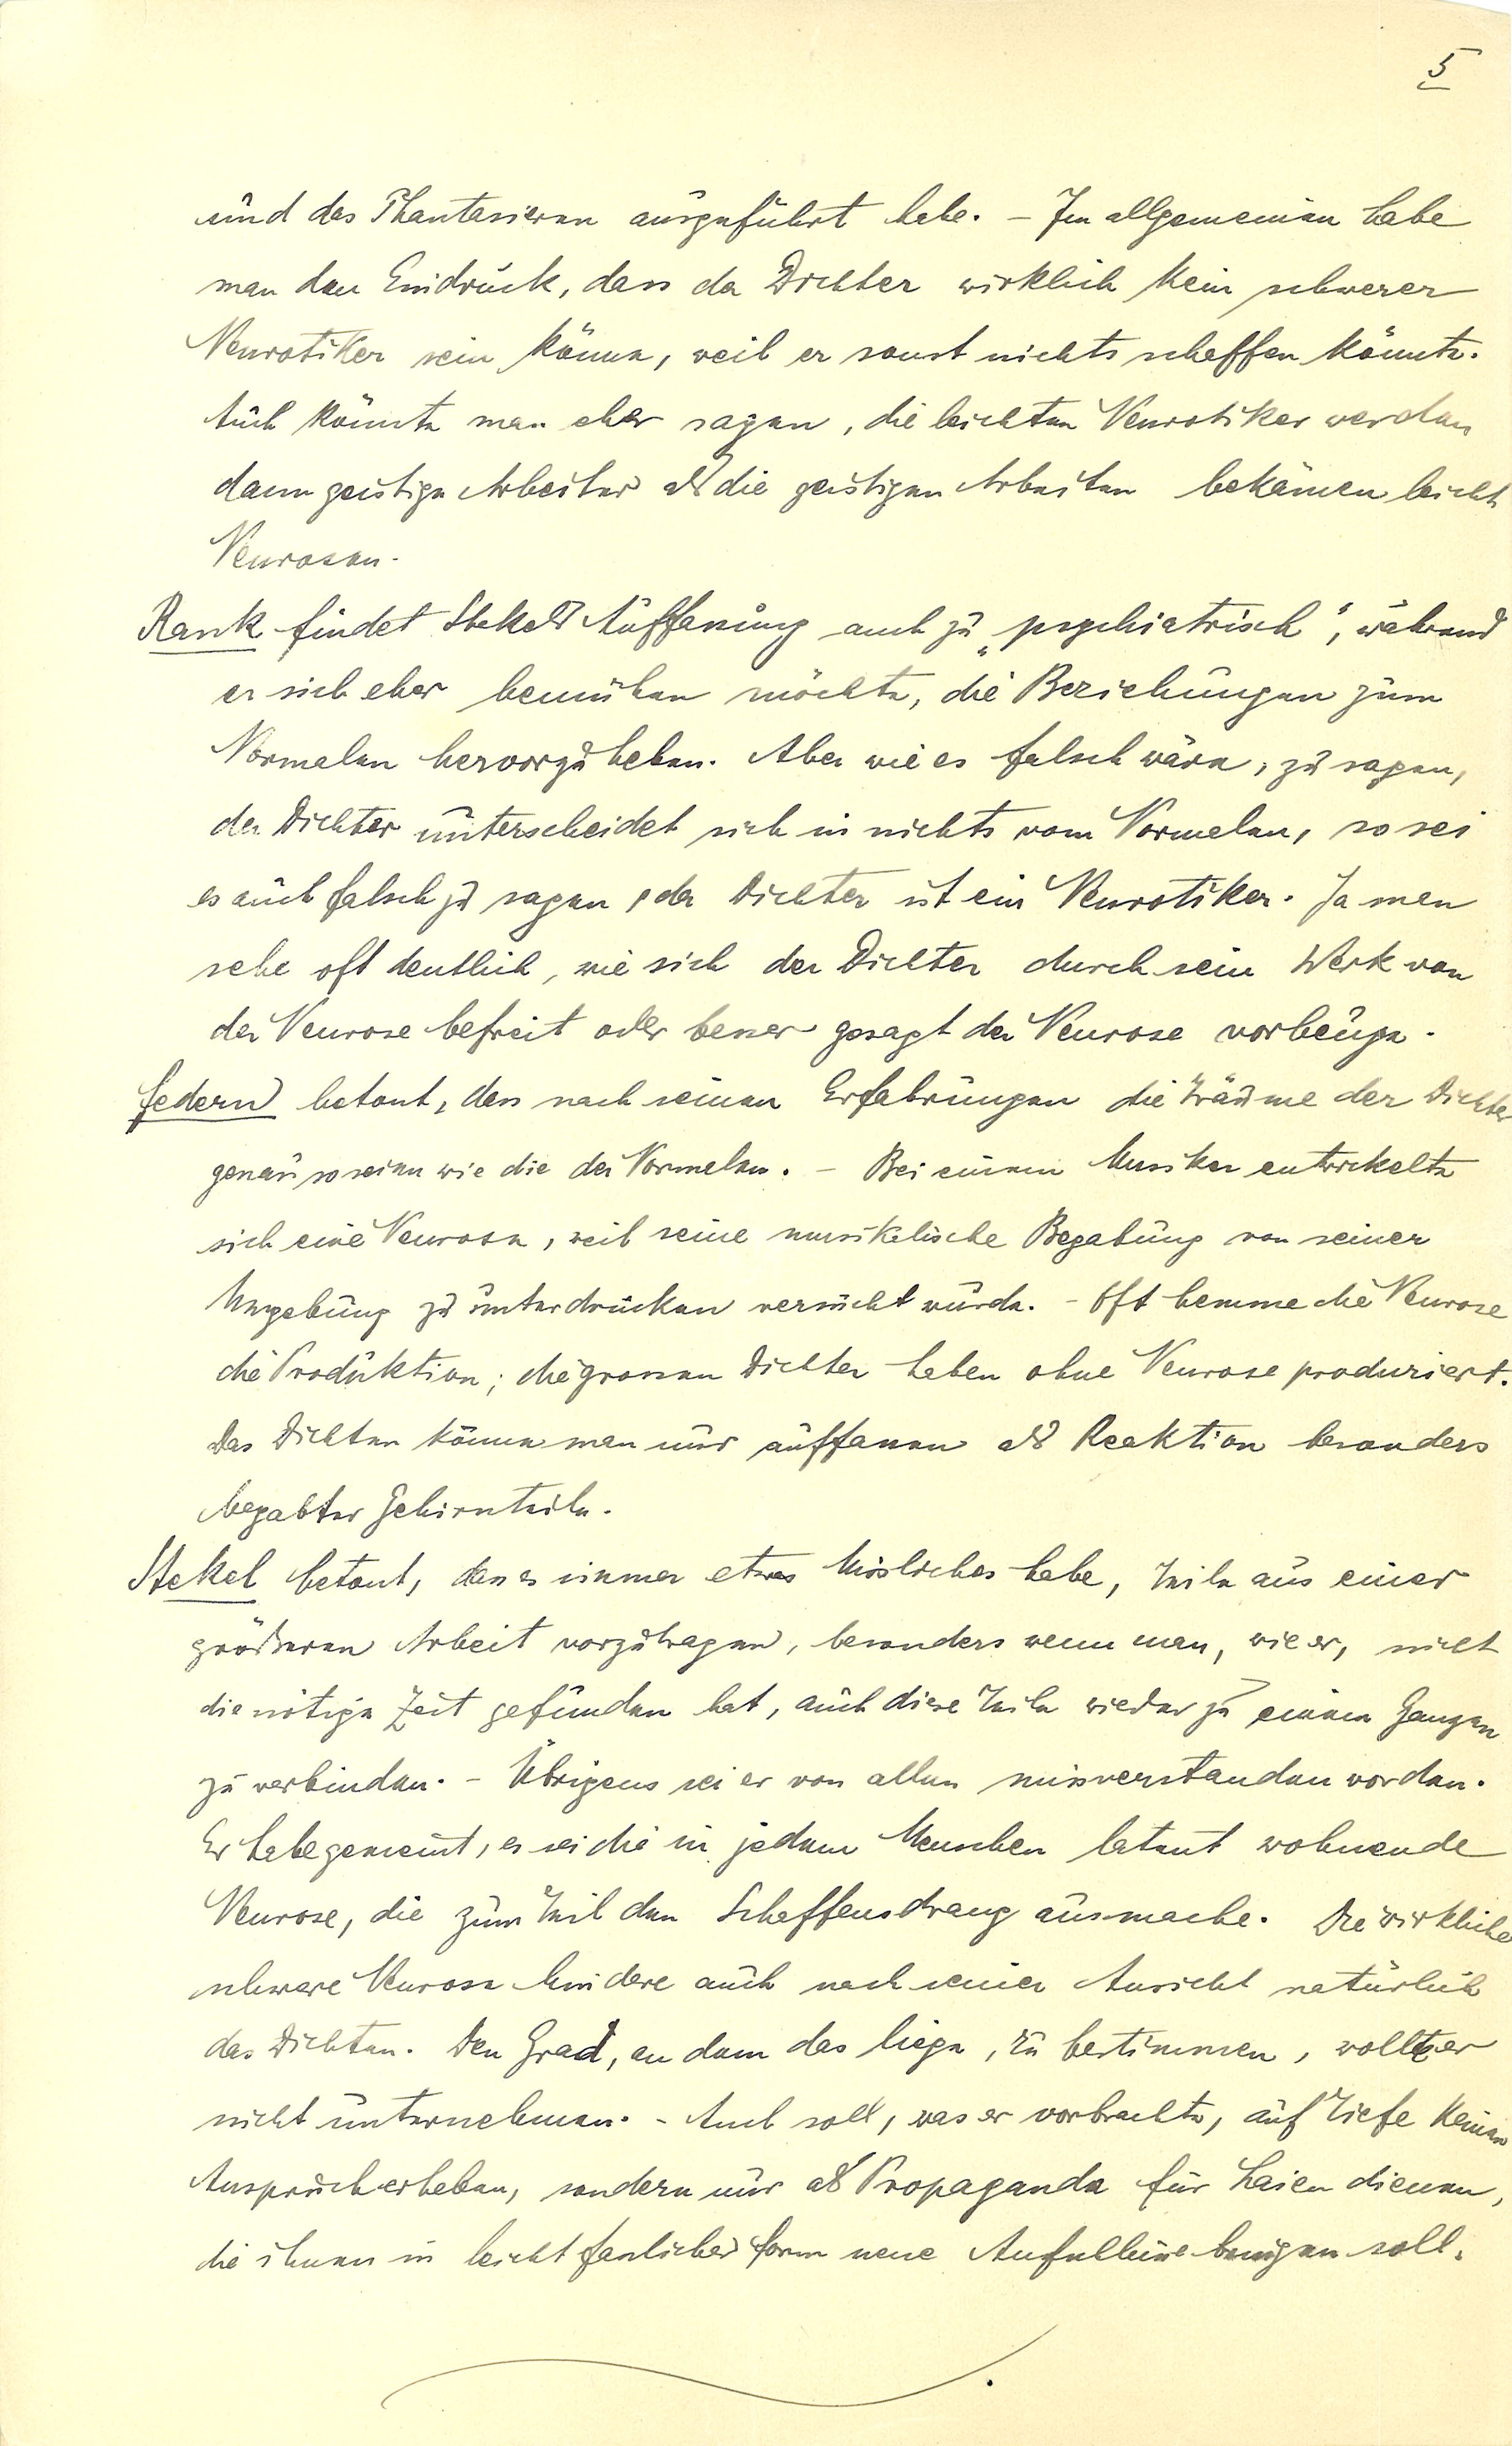 5
und des Phantasieren ausgeführt habe. – Im allgemeinen habe
man den Eindruck, dass der Dichter wirklich kein schwerer
Neurotiker sein könne, weil er sonst nichts schaffen könnte.
Auch könnte man eher sagen, die leichten Neurotiker werden
dann geistige Arbeiter als die geistigen Arbeiten bekämen leicht
Neurosen.
Rank findet Stekels Auffassung auch zu „psychiatrisch“, während
er sich eher bemühen möchte, die Beziehungen zum
Normalen hervorzuheben. Aber wie es falsch wäre, zu sagen,
der Dichter unterscheidet sich in nichts vom Normalen, so sei
es auch falsch zu sagen, der Dichter ist ein Neurotiker. Ja man
sehe oft deutlich, wie sich der Dichter durch sein Werk von
der Neurose befreit oder besser gesagt der Neurose vorbeuge.
Federn betont, dass nach seinen Erfahrungen die Träume der Dichter
genau so seien wie die der Normalen. – Bei einem Musiker entwickelte
sich eine Neurose, weil seine musikalische Begabung von seiner
Umgebung zu unterdrücken versucht wurde. – Oft hemme die Neurose
die Produktion; die grossen Dichter haben ohne Neurose produziert.
Das Dichten könne man nur auffassen als Reaktion besonders
begabter Gehirnteile.
Stekel betont, dass es immer etwas Missliches habe, Teile aus einer
größeren Arbeit vorzutragen, besonders wenn man, wie er, nicht
die nötige Zeit gefunden hat, auch diese Teile wieder zu einem Ganzen
zu verbinden. – Übrigens sei er von allen missverstanden worden.
Er habe gemeint, es sei die in jedem Menschen latent wohnende
Neurose, die zum Teil den Schaffensdrang ausmache. Die wirkliche
schwere Neurose hindere auch nach seiner Ansicht natürlich
das Dichten. Den Grad, an dem das liege, zu bestimmen, wollte er
nicht unternehmen. – Auch soll, was er vorbrachte, auf Tiefe keinen
Anspruch erheben, sondern nur als Propaganda für Laien dienen,
die ihnen in leicht fasslicher Form neue bringen soll.